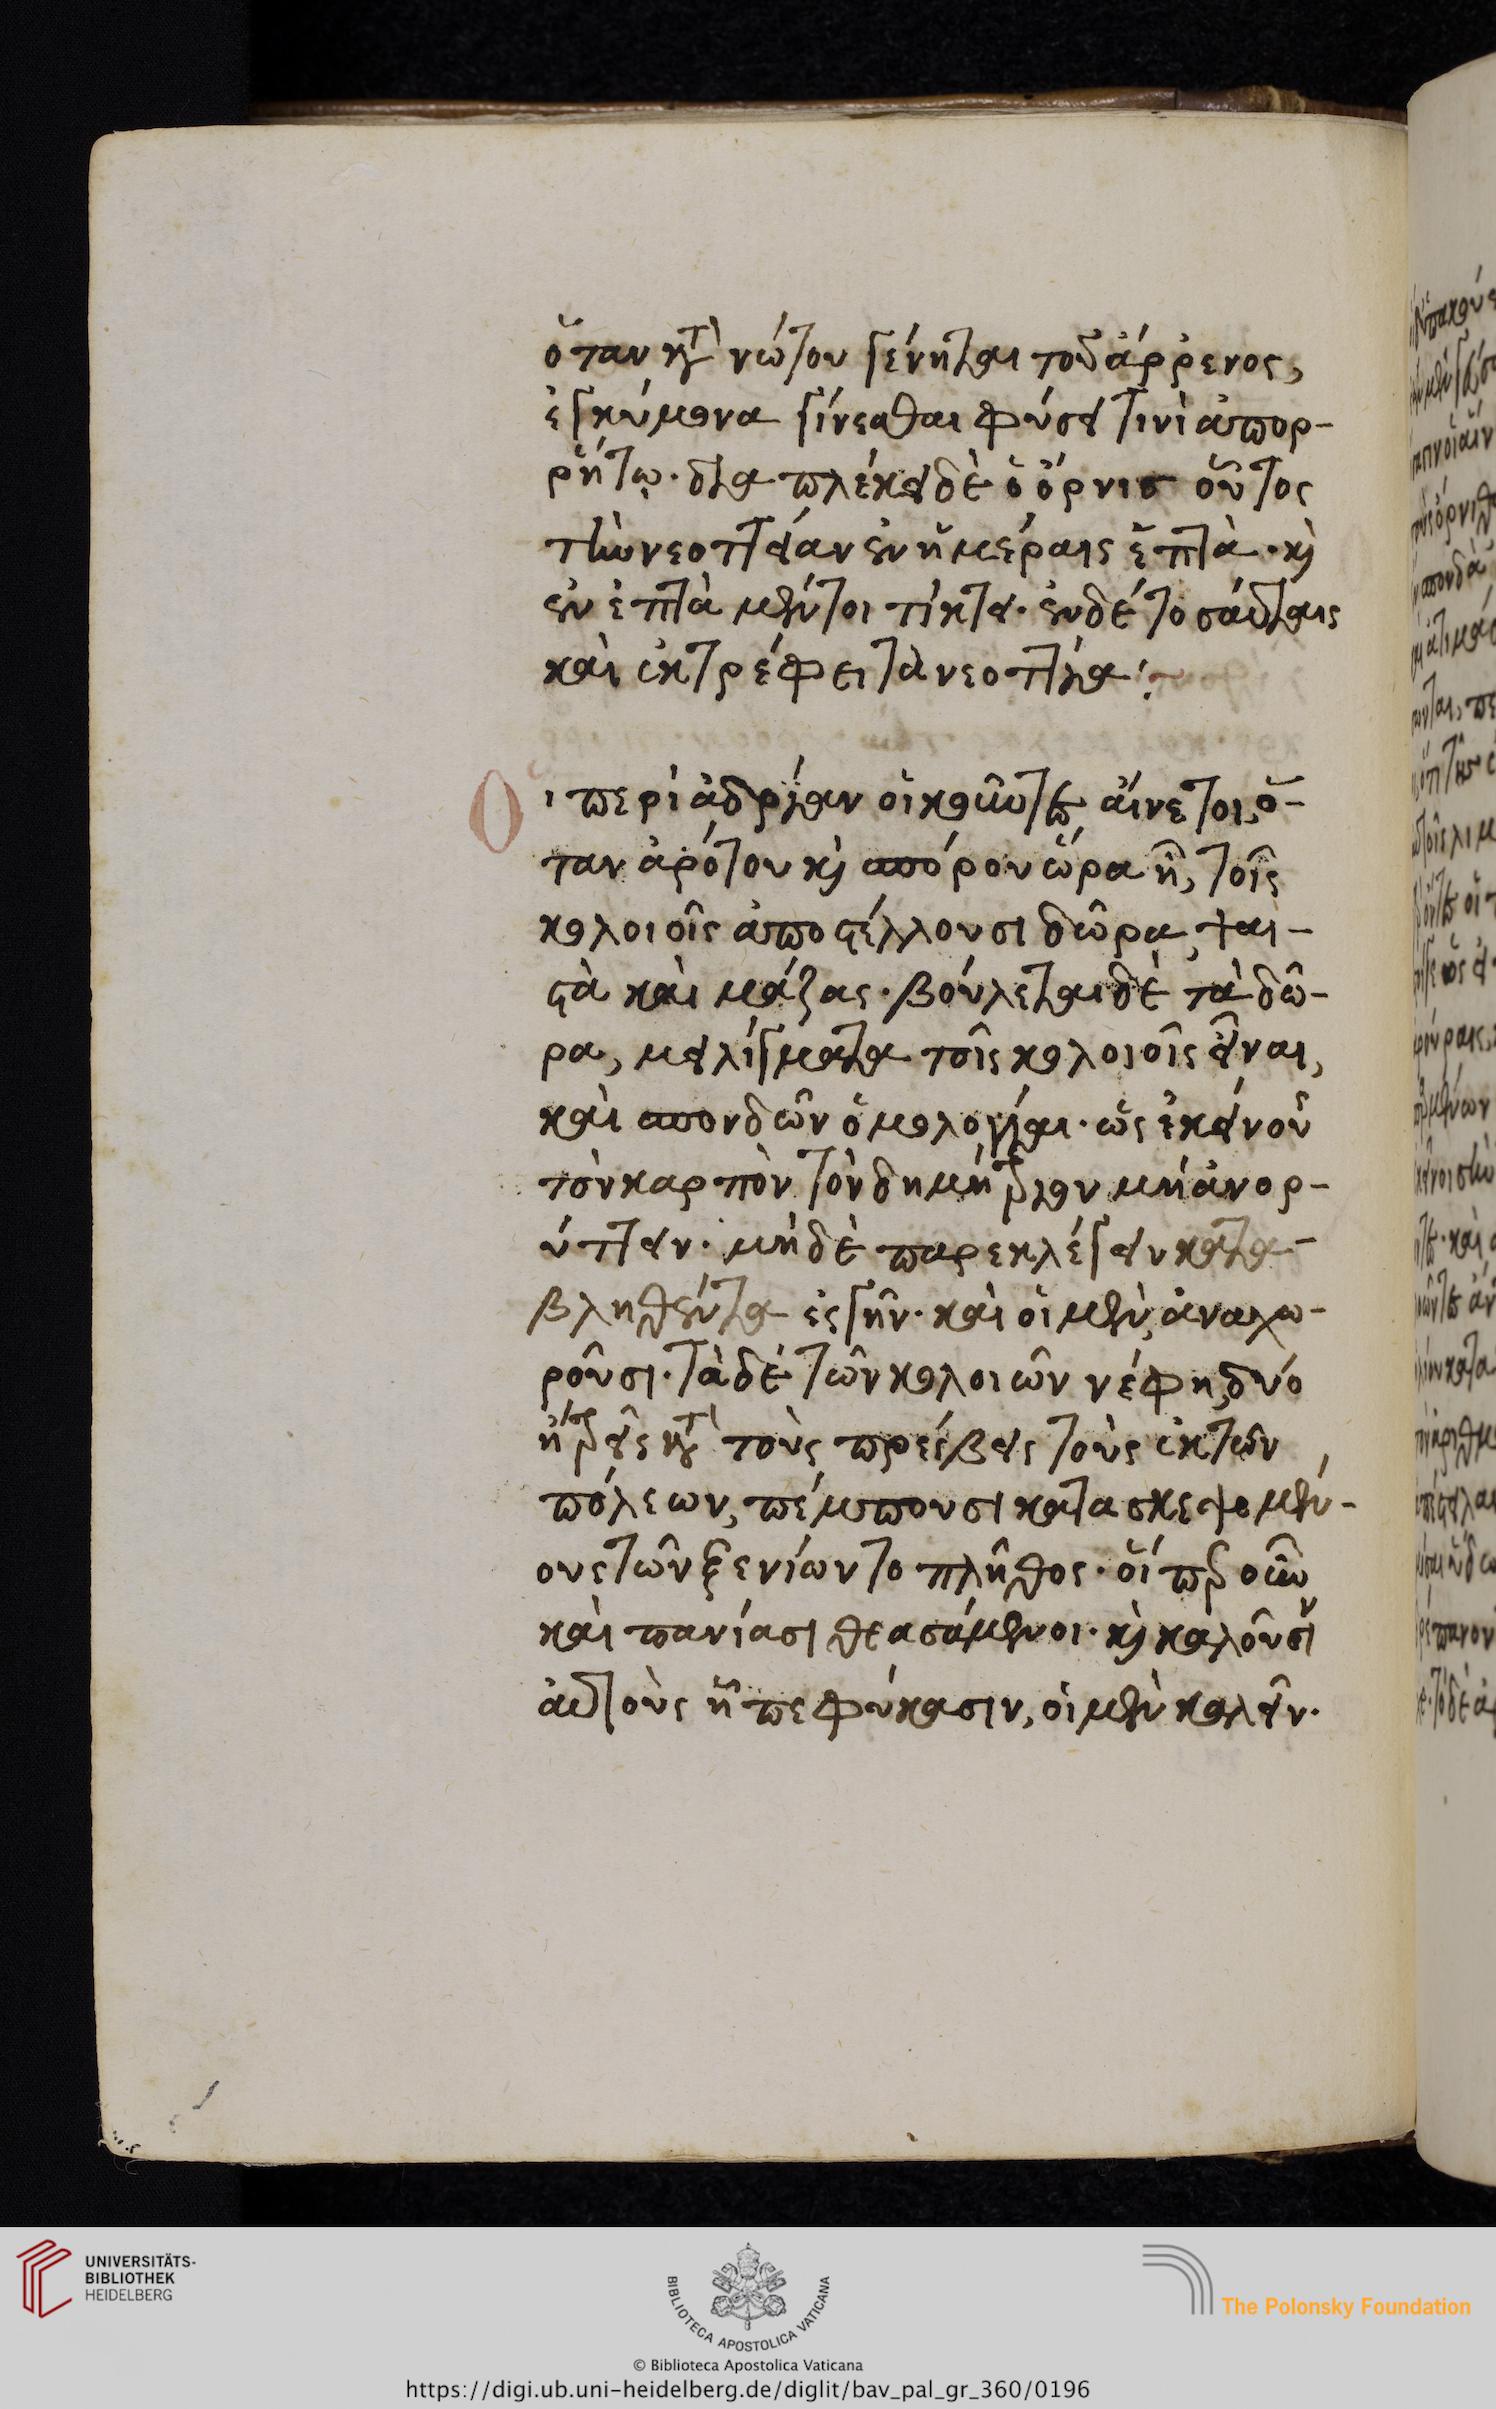 ὅταν κατὰ νώτου γένηται τοῦ ἄρρενος,
ἐγκύμονα γίνεσθαι φύσει τινὶ ἀπορ-
ρήτω. διαπλέκει δὲ ὁ ὄρνις οὗτος
τὴν νεοττείαν ἐν ἡμέραις ἑπτὰ. καὶ
ἐν ἑπτὰ μέντοι τίκτει. ἐν δὲ τοσαύταις
καὶ ἐκτρέφει τὰ νεοττία:~
Οἱ περὶ ἀδρίαν οἰκοῦντες αἰνετοι, ὅ-
ταν ἀρότου καὶ σπόρου ὥρα ῆ, τοῖς
κολοιοῖς ἀποστέλλουσι δῶρα, ψαι-
στὰ καὶ μάζας. βούλεται δὲ τὰ δῶ-
ρα, μειλίγματα τοῖς κολοιοῖς εἶναι,
καὶ σπονδῶν ὁμολογίαι. ὡς ἐκείνου
τὸν καρπὸν τὸν δημήτριον μὴ ἀνορ-
ύττειν. μὴ δὲ παρεκλέγειν κατα-
βληθέντα ἐς γῆν. καὶ οἱ μὲν, ἀναχω-
ροῦσι. τὰ δὲ τῶν κολοιῶν νέφη, δύο
ἢ τρεῖς κατὰ τοὺς πρέσβεις τοὺς ἐκ τῶν
πόλεων, πέμπουσι κατασκεψομέν-
ους τῶν ξενίων το πλῆθος. οἵπερ οὖν
καὶ πανίασι θεασάμενοι. καὶ καλοῦσιν
αὐτοὺς ἧ πεφύκασιν, οἱ μὲν καλεῖν.
UNIVERSITÄTS-
BIBLIOTHEK
HEIDELBERG
BIBLIOTECA APOSTOLICA VATICANA
The Polonsky Foundation
© Biblioteca Apostolica Vaticana
https://digi.ub.uni-heidelberg.de/diglit/bav_pal_gr_360/0196